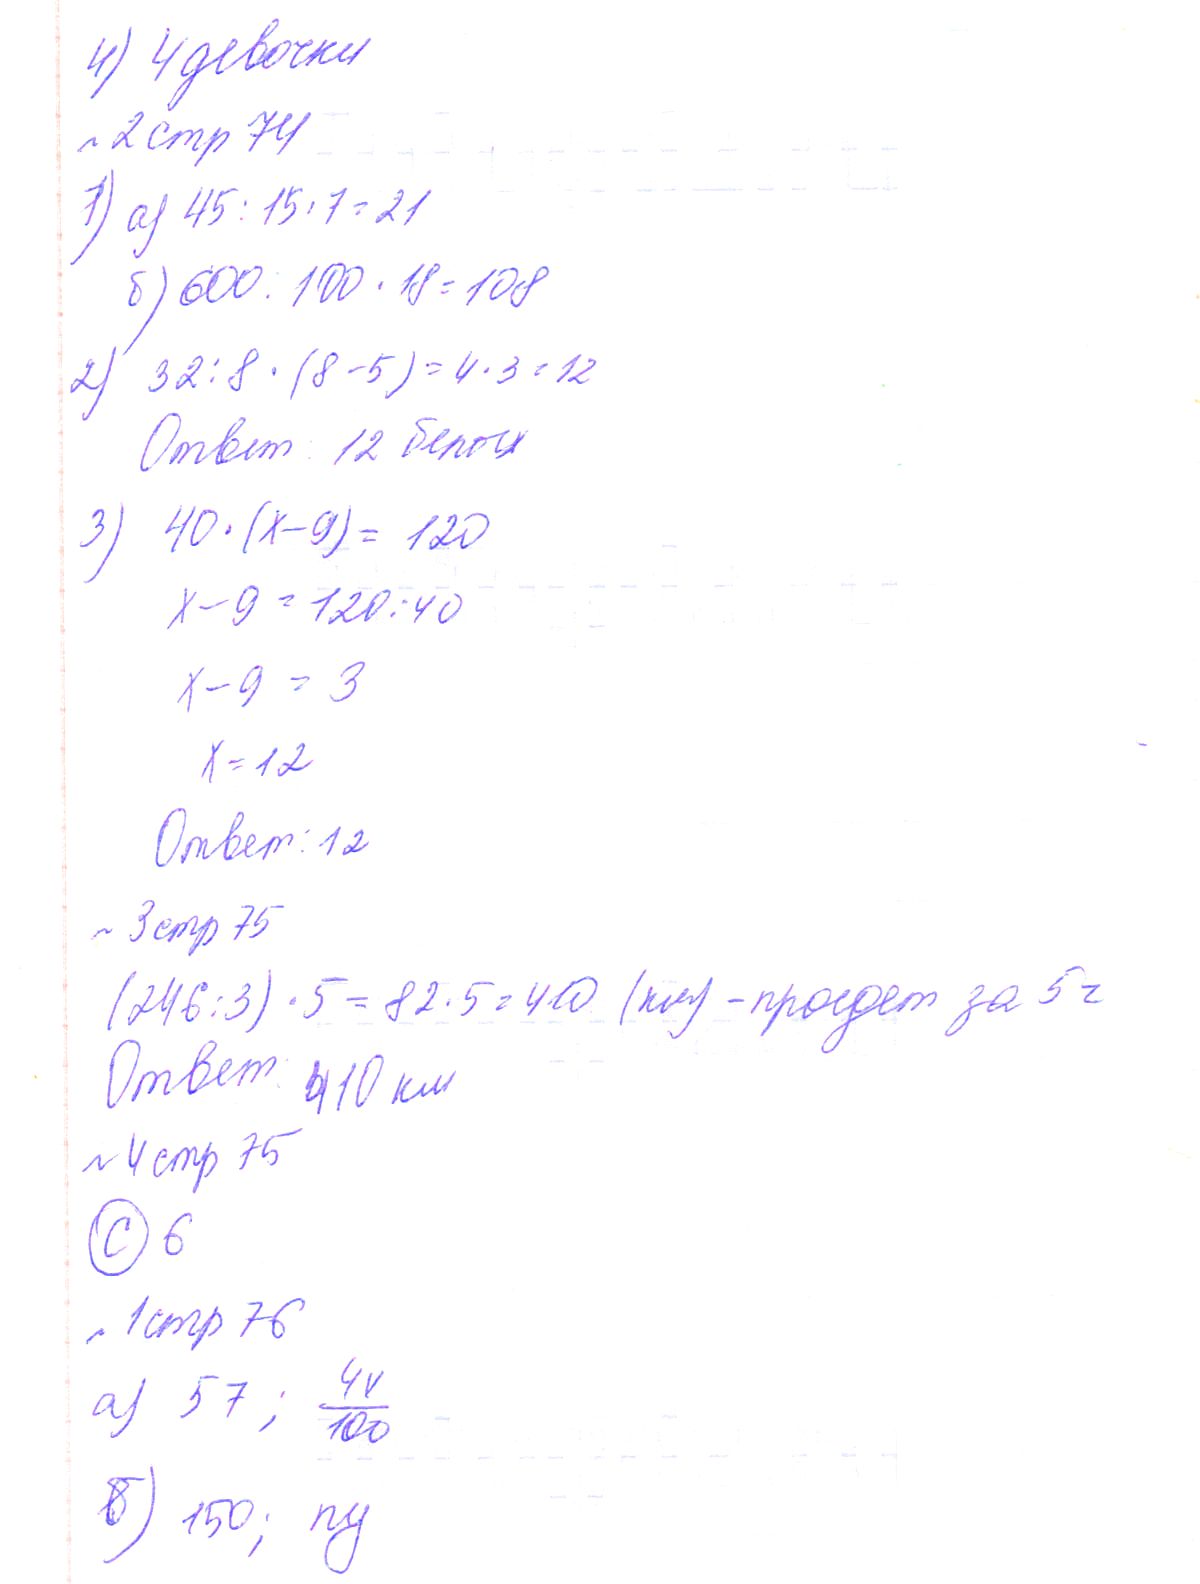 4) 4 девочки
~ 2 стр 74
1) а) 45 : 15 · 7 = 21
б) 600 : 100 · 18 = 108
2) 32 : 8 · (8 - 5) = 4 · 3 = 12
Ответ: 12 белых
3) 40 · (x - 9) = 120
x - 9 = 120 : 40
x - 9 = 3
x = 12
Ответ: 12
~ 3 стр 75
(246 : 3) · 5 = 82 · 5 = 410 (км) - проедет за 5 ч
Ответ: 410 км
~ 4 стр 75
(С) 6
~ 1 стр 76
а) 57 ; 4v/100
б) 150 ; ny